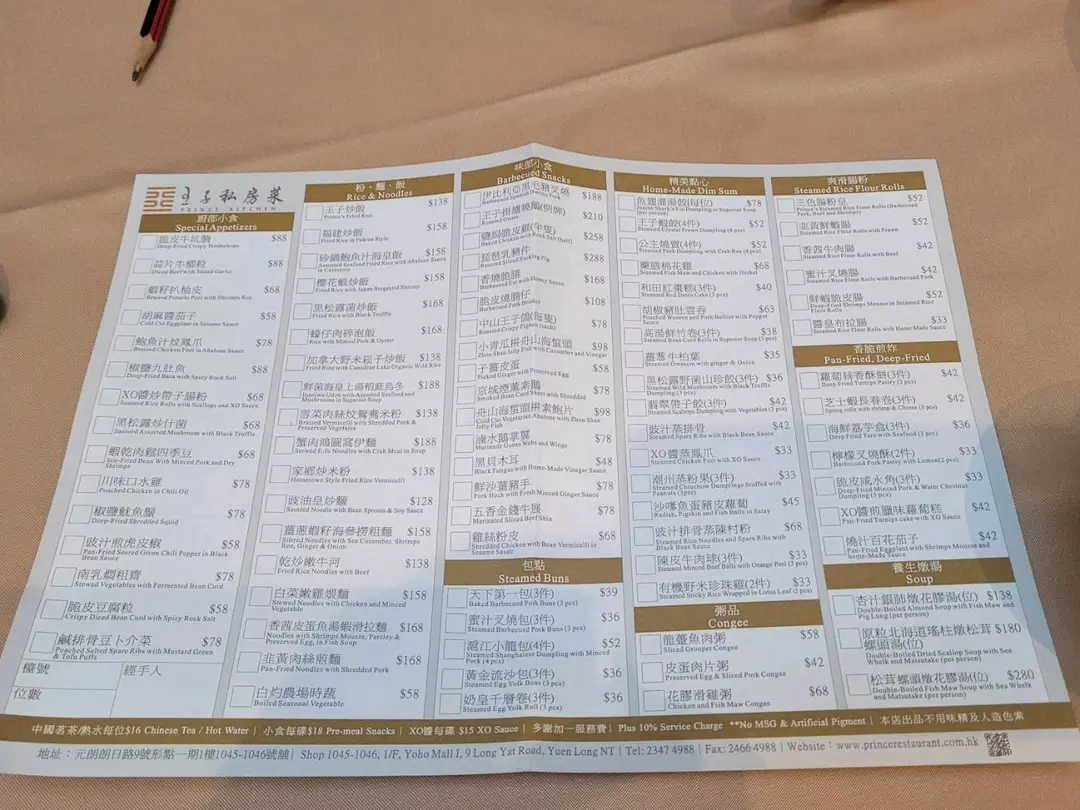 王子私房菜
PRINCE KITCHEN
廚部小食
Special Appetizers
脆皮牛坑腩 $88
Deep-Fried Crispy Tenderloins
蒜片牛柳粒 $88
Diced Beef with Sliced Garlic
蝦籽扒柚皮 $68
Braised Pomelo Peel with Shrimps Roe
胡麻醬茄子 $58
Cold Cut Eggplant in Sesame Sauce
鮑魚汁炆鳳爪 $78
Chicken Feet in Abalone Sauce
椒鹽九肚魚 $88
Deep-Fried Buna with Spicy Rock Salt
XO醬炒帶子腸粉 $68
Sauteed Rice Rolls with Scallops and XO Sauce
黑松露炒什菌 $68
Sauteed Assorted Mushroom with Black Truffle
蝦乾肉鬆四季豆 $68
Stir-Fried Bean with Minced Pork and Dry
Shrimps
川味口水雞 $78
Poached Chicken in Chili Oil
椒鹽魷魚鬚 $78
Deep-Fried Shredded Squid
豉汁煎虎皮椒 $58
Pan-Fried Seared Green Chili Pepper in Black
Bean Sauce
南乳燜粗齋 $78
Stewed Vegetables with Fermented Bean Curd
脆皮豆腐粒 $58
Diced Crispy Bean Curd with Spicy Rock Salt
鹹排骨豆卜介菜 $78
Poached Salted Spare Ribs with Mustard Green
& Tofu Puffs
檯號 經手人
位數
粉、麵、飯
Rice & Noodles
王子炒飯 $138
Prince's Fried Rice
福建炒飯 $158
Fried Rice in Fukien Style
砂鍋鮑魚汁海皇飯 $158
Assorted Seafood Fried Rice with Abalone Sauce
in Casserole
櫻花蝦炒飯 $158
Fried Rice with Japan Sergestid Shrimp
黑松露菌炒飯 $168
Fried Rice with Black Truffle
蠔仔肉碎泡飯 $168
Rice with Minced Pork & Oyster
加拿大野米崧子炒飯 $138
Fried Rice with Canadian Lake Organic Wild Rice
鮮菌海皇上湯稻庭烏冬 $188
Inaniwa Udon with Assorted Seafood and
Mushrooms in Superior Soup
雪菜肉絲炆鴛鴦米粉 $138
Braised Vermicelli with Shredded Pork &
Preserved Vegetables
蟹肉鴻圖窩伊麵 $188
Stewed E-fu Noodles with Crab Meat in Soup
家鄉炒米粉 $138
Hometown Style Fried Rice Vermicelli
豉油皇炒麵 $128
Sauteed Noodle with Bean Sprouts & Soy Sauce
薑蔥蝦籽海參撈粗麵 $158
Stirred Noodles with Sea Cucumber, Shrimps
Roe, Ginger & Onion
乾炒嫩牛河 $138
Fried Rice Noodles with Beef
白菜嫩雞煨麵 $158
Stewed Noodles with Chicken and Minced
Vegetable
香茜皮蛋魚湯蝦滑拉麵 $168
Noodles with Shrimps Mousse, Parsley &
Preserved Egg, in Fish Soup
韭黃肉絲煎麵 $168
Pan-Fried Noodles with Shredded Pork
白灼農場時蔬 $58
Boiled Seasonal Vegetable
味部小食
Barbecued Snacks
伊比利亞黑毛豬叉燒 $188
Barbecued Spanish Iberico Pork
王子掛爐燒鵝(例牌) $210
Roasted Goose
鹽焗脆皮雞(半隻) $258
Baked Chicken with Rock Salt (half)
琵琶乳豬件 $288
Roasted Sliced Sucking Pig
香燒脆腩 $168
Barbecued Eat with Honey Sauce
脆皮燒腩仔 $108
Barbecued Pork Brisket
中山王子鴿(每隻) $78
Roasted Crispy Pigeon (each)
小青瓜拼舟山海蜇頭 $98
Zhou Shan Jelly Fish with Cucumber and Vinegar
子薑皮蛋 $58
Picked Ginger with Preserved Egg
京城煙薰素鵝 $78
Smoked Bean Curd Sheet with Shredded
舟山海蜇頭拼素鮑片 $98
Cold Cut Vegetarian Abalone with Zhou Shan
Jelly Fish
滷水鵝掌翼 $78
Marinade Goose Webs and Wings
黑貝木耳 $48
Black Fungus with Home-Made Vinegar Sauce
鮮沙薑豬手 $78
Pork Hock with Fresh Minced Ginger Sauce
五香金錢牛展 $78
Marinated Sliced Beef Shin
雞絲粉皮 $68
Shredded Chicken with Bean Vermicelli in
Sesame Sauce
包點
Steamed Buns
天下第一包(3件) $39
Baked Barbecued Pork Buns (3 pcs)
蜜汁叉燒包(3件) $36
Steamed Barbecued Pork Buns (3 pcs)
滬江小籠包(4件) $52
Steamed Shanghainese Dumpling with Minced
Pork (4 pcs)
黃金流沙包(3件) $36
Steamed Egg Yolk Buns (3 pcs)
奶皇千層卷(3件) $36
Steamed Egg Yolk Roll (3 pcs)
精美點心
Home-Made Dim Sum
魚翅灌湯餃(每位) $78
Jumbo Shark's Fin Dumpling in Superior Soup
(per person)
王子蝦餃(4件) $52
Steamed Crystal Prawn Dumpling (4 pcs)
公主燒賣(4件) $52
Steamed Pork Dumpling with Crab Roe (4 pcs)
藥膳棉花雞 $68
Steamed Fish Maw and Chicken with Herbal
和田紅棗糕(3件) $40
Steamed Red Dates Cake (3 pcs)
胡椒豬肚雲吞 $63
Poached Wonton and Pork Bellies with Pepper
Sauce
高湯鮮竹卷(3件) $38
Steamed Bean Curd Rolls in Superior Soup (3 pcs)
薑蔥牛柏葉 $35
Steamed Omasum with ginger & Onion
黑松露野菌山珍餃(3件) $36
Steamed Wild Mushroom with Black Truffle
Dumpling (3 pcs)
翡翠帶子餃(3件) $42
Steamed Scallops Dumpling with Vegetables (3
pcs)
豉汁蒸排骨 $42
Steamed Spare Ribs with Black Bean Sauce
XO醬蒸鳳爪 $33
Steamed Chicken Feet with XO Sauce
潮州蒸粉果(3件) $33
Steamed Chiuchow Dumplings Stuffed with
Peanuts (3pcs)
沙嗲魚蛋豬皮蘿蔔 $45
Radish, Pigskin and Fish Balls in Satay
豉汁排骨蒸陳村粉 $68
Steamed Rice Noodles and Spare Ribs with
Black Bean Sauce
陳皮牛肉球(3件) $33
Steamed Minced Beef Balls with Orange Peel (3 pcs)
有機野米珍珠雞(2件) $33
Steamed Sticky Rice Wrapped in Lotus Leaf (2 pcs)
粥品
Congee
龍躉魚肉粥 $58
Sliced Grouper Congee
皮蛋肉片粥 $42
Preserved Egg & Sliced Pork Congee
花膠滑雞粥 $68
Chicken and Fish Maw Congee
爽滑腸粉
Steamed Rice Flour Rolls
三色腸粉皇 $52
Prince's Steamed Rice Flour Rolls (Barbecued
Pork, Beef and Shrimps)
韭黃鮮蝦腸 $52
Steamed Rice Flour Rolls with Prawn
香茜牛肉腸 $42
Steamed Rice Flour Rolls with Beef
蜜汁叉燒腸 $42
Steamed Rice Flour Rolls with Barbecued Pork
鮮蝦脆皮腸 $52
Deep-Fried Shrimps Mousse in Steamed Rice
Flour Rolls
醬皇布拉腸 $33
Steamed Rice Flour Rolls with Home Made Sauce
香脆煎炸
Pan-Fried, Deep-Fried
蘿蔔絲香酥餅(3件) $42
Deep Fried Turnips Pastry (3 pcs)
芝士蝦長春卷(3件) $42
Spring rolls with shrimp & Cheese (3 pcs)
海鮮荔芋盒(3件) $36
Deep Fried Taro with Seafood (3 pcs)
檸檬叉燒酥(2件) $33
Barbecued Pork Pastry with Lemon(2 pcs)
脆皮咸水角(3件) $33
Deep-Fried Minced Pork & Water Chestnut
Dumpling (3 pcs)
XO醬煎臘味蘿蔔糕 $42
Pan-Fried Turnips cake with XO Sauce
燒汁百花茄子 $42
Pan-Fried Eggplant with Shrimps Mousse and
Home-Made Sauce
養生燉湯
Soup
杏汁銀師燉花膠湯(位) $138
Double-Boiled Almond Soup with Fish Maw and
Pig Lung (per person)
原粒北海道瑤柱燉松茸 $180
螺頭湯(位)
Double-Boiled Dried Scallop Soup with Sea
Whelk and Matsutake (per person)
松茸螺頭燉花膠湯(位) $280
Double-Boiled Fish Maw Soup with Sea Whelk
and Matsutake (per person)
中國茗茶/熱水每位$16 Chinese Tea / Hot Water | 小食每碟$18 Pre-meal Snacks | XO醬每碟 $15 XO Sauce | 多謝加一服務費 | Plus 10% Service Charge **No MSG & Artificial Pigment | 本店出品不用味精及人造色素
地址：元朗朗日路9號形點一期1樓1045-1046號舖 | Shop 1045-1046, 1/F, Yoho Mall I, 9 Long Yat Road, Yuen Long NT | Tel: 2347 4988 | Fax: 2466 4988 | Website：www.princerestaurant.com.hk